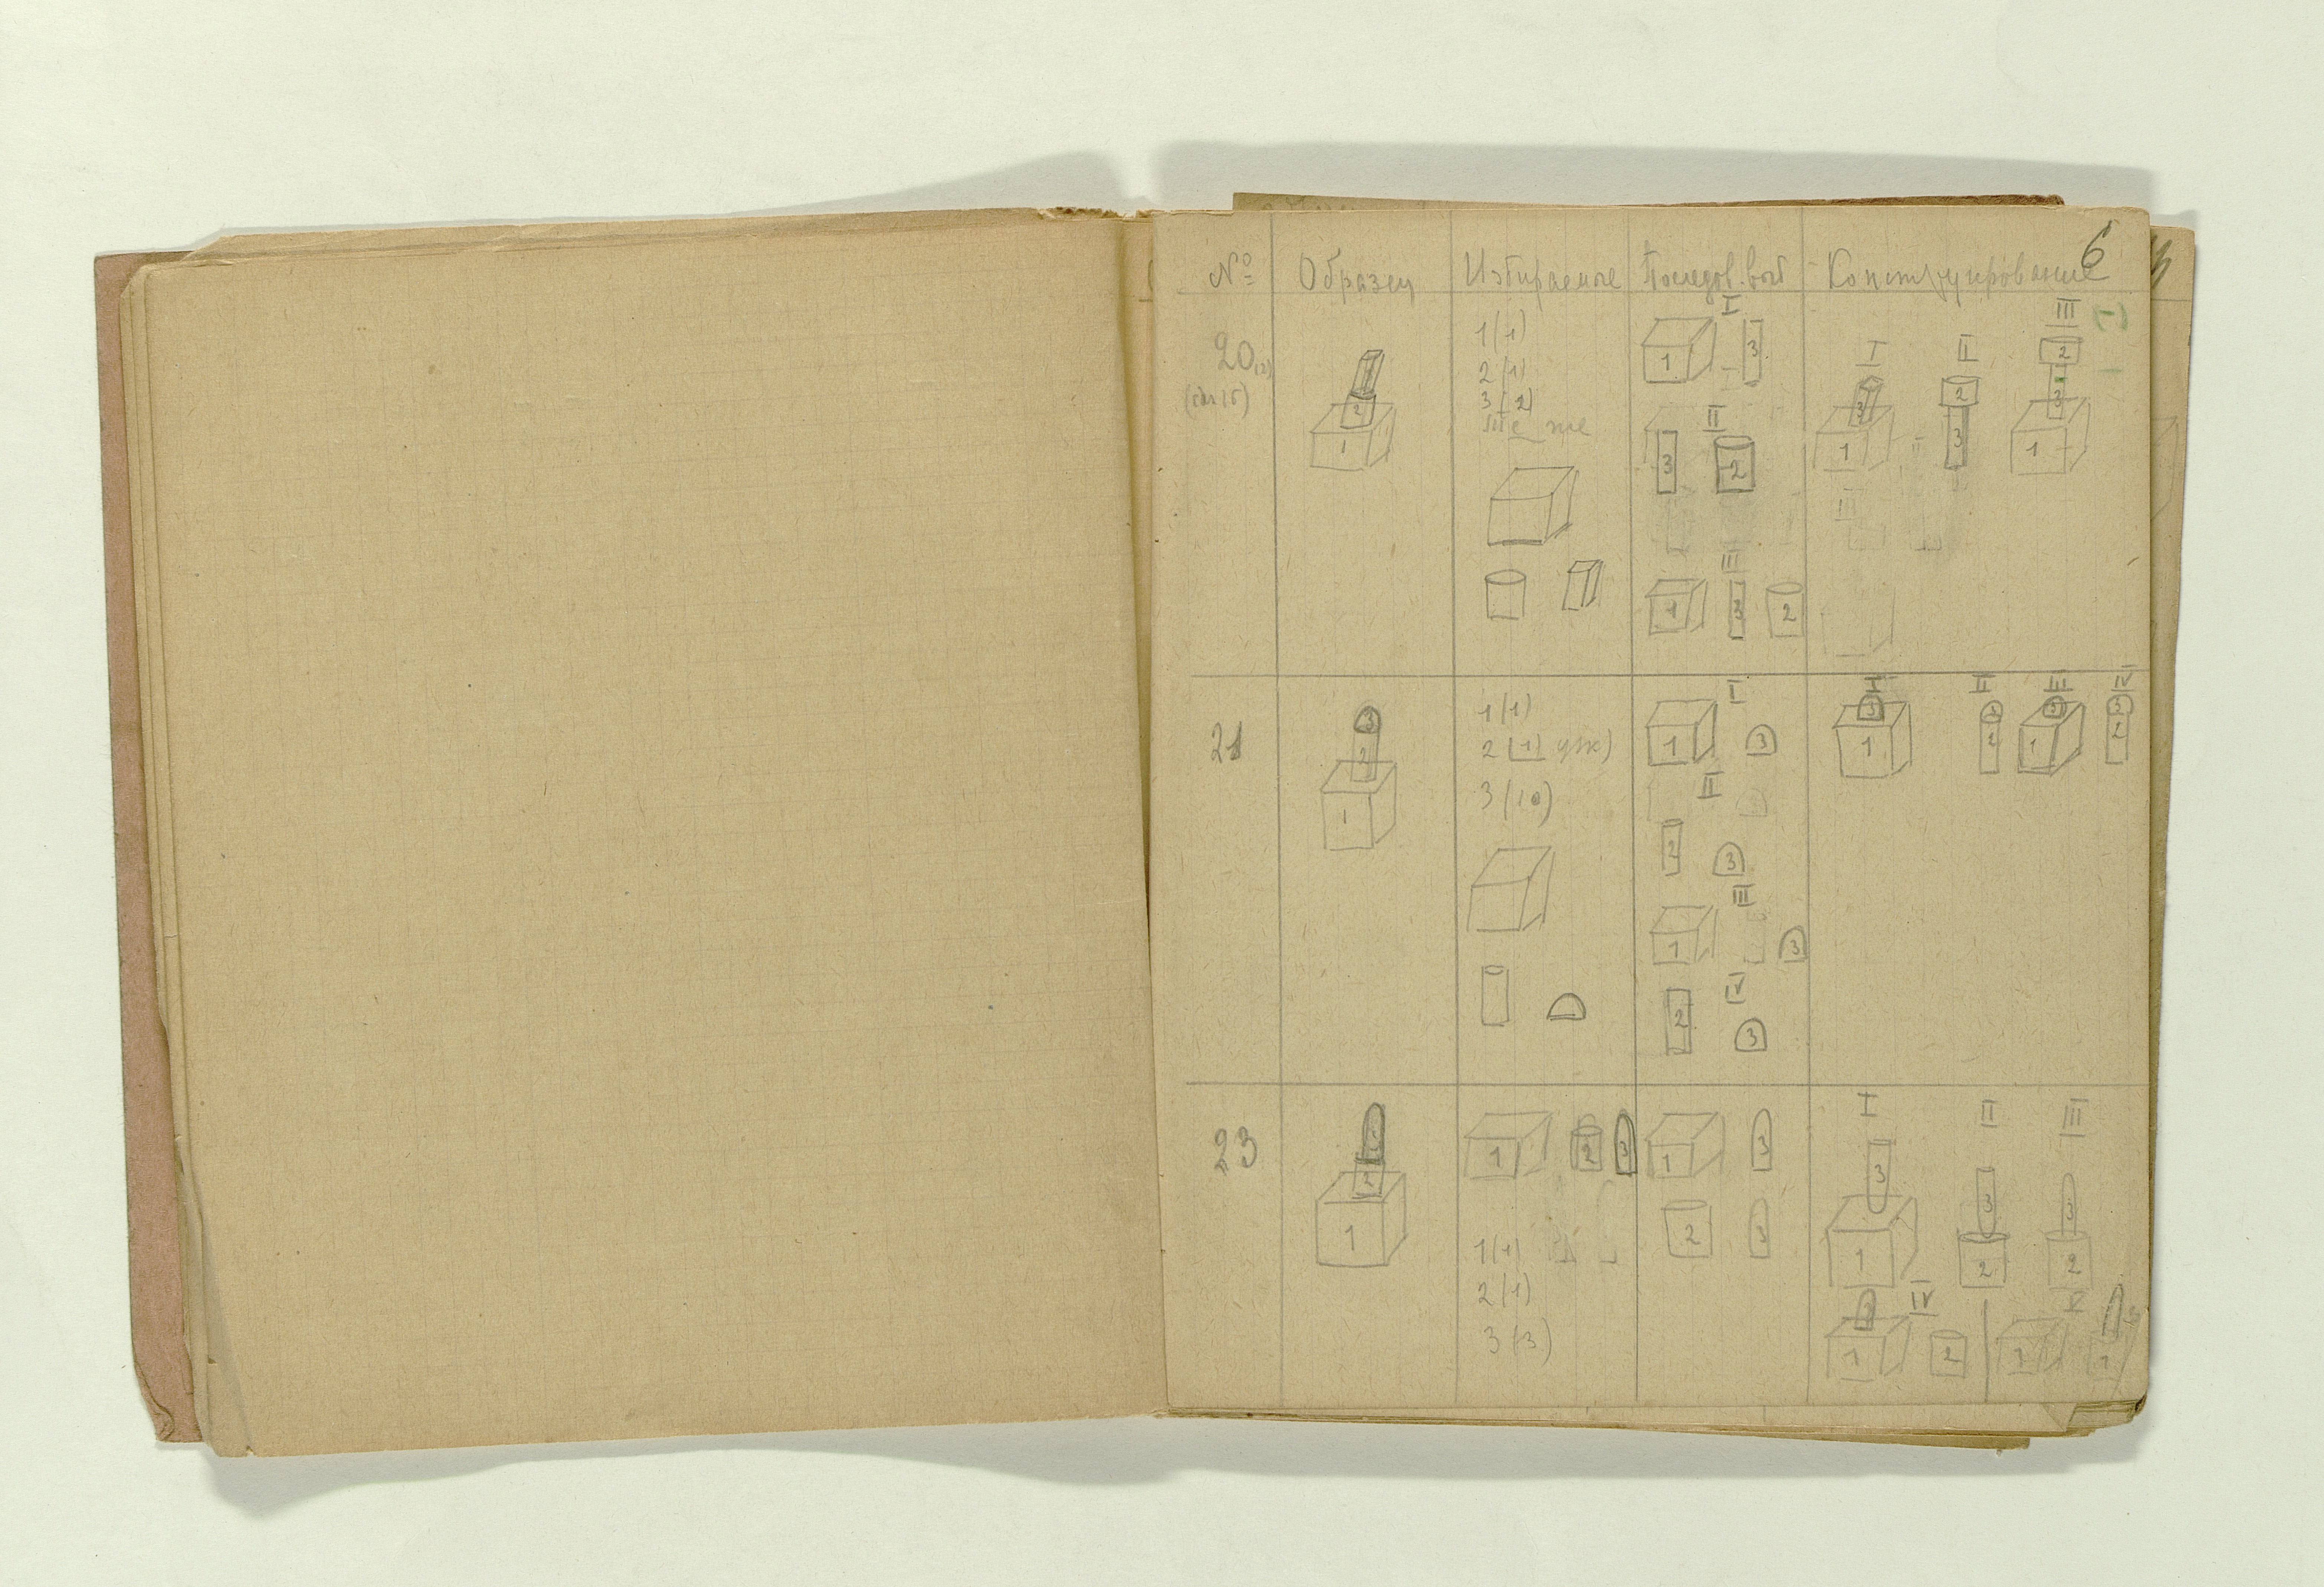 6
№ Образец Избираемые Последов. выб Конструирование
20
1(1)
2(1)
3(2)
те же
1
2
I
1 3
II
3 2
III
1 3 2
I II III
3 2 2
1 3 3
1
21
3
2
1
1(1)
2(1)
3(10)
I
1 3
II
2 3
III
1 3
IV
2 3
I II III IV
3 3 3 3
1 2 1 2
23
3
2
1
1 2 3
1(1)
2(1)
3(3)
1 3
2 3
I II III
3 3 3
1 2 2
IV V
3
1 2